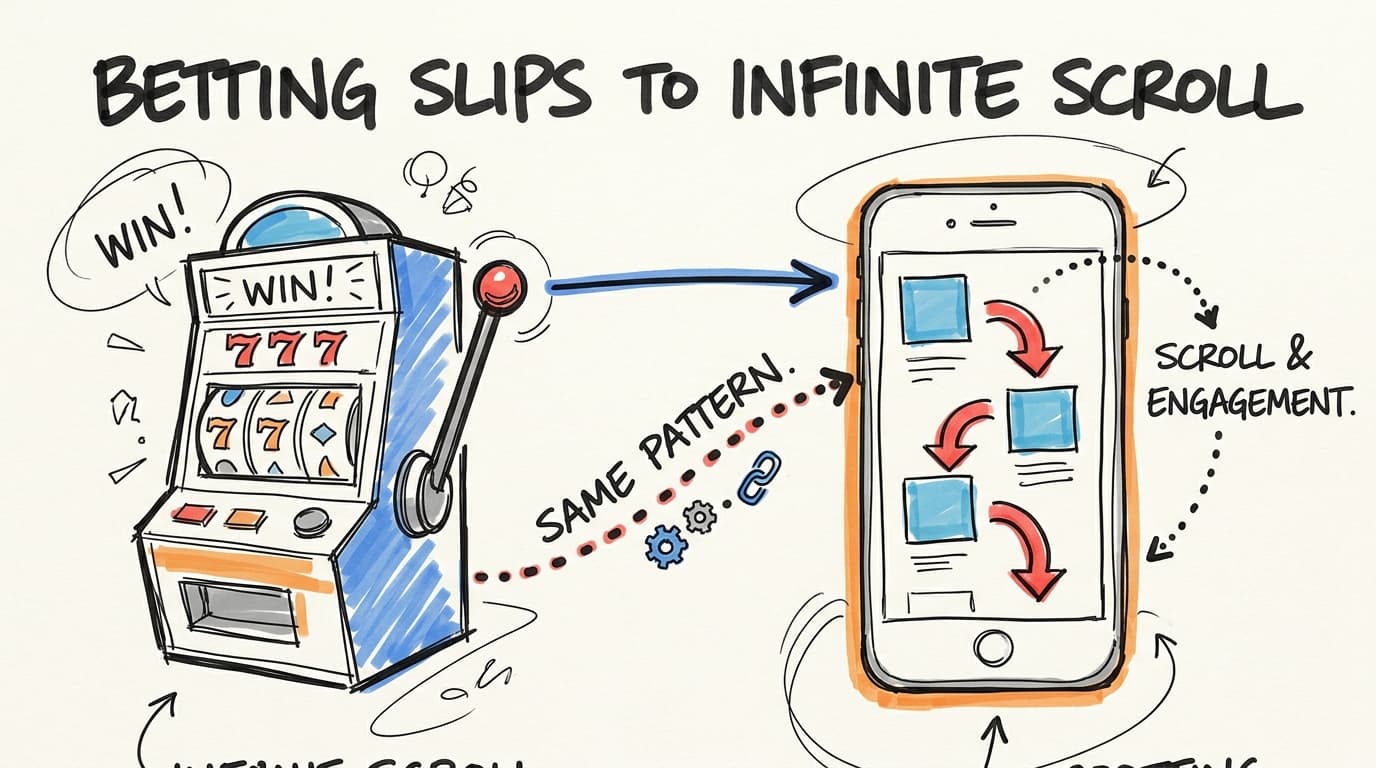 BETTING SLIPS TO INFINITE SCROLL
WIN!
WIN!
777
7 7
SAME PATTERN.
SCROLL &
ENGAGEMENT.
SCROLL